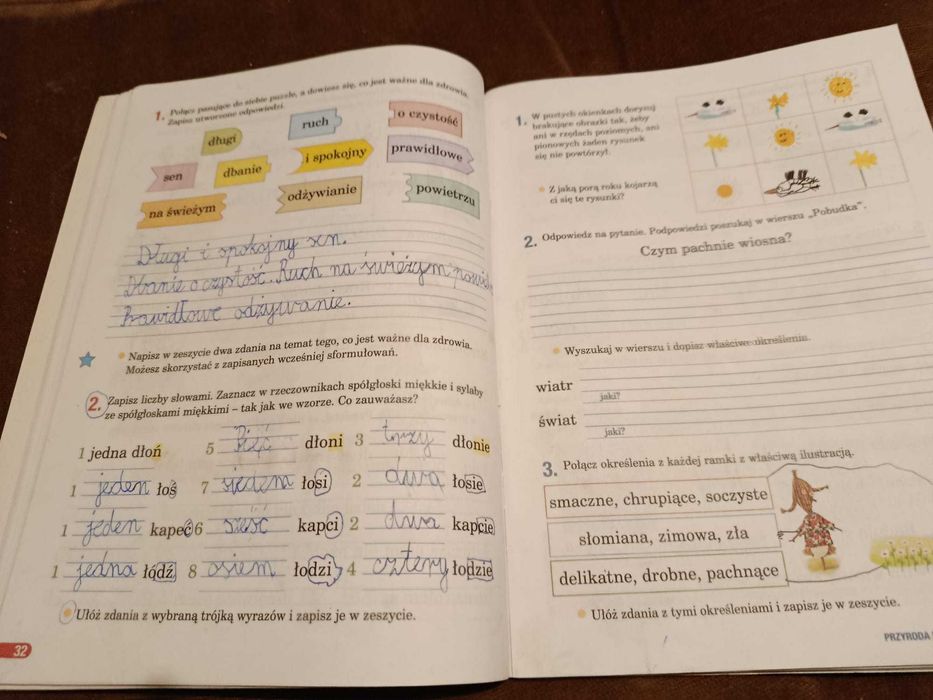 1. Połącz pasujące do siebie puzzle, a dowiesz się, co jest ważne dla zdrowia.
Zapisz utworzone odpowiedzi.
długi
ruch
o czystość
sen
dbanie
i spokojny
prawidłowe
na świeżym
odżywianie
powietrzu
Długi i spokojny sen.
Dbanie o czystość. Ruch na świeżym
Prawidłowe odżywianie.
Napisz w zeszycie dwa zdania na temat tego, co jest ważne dla zdrowia.
Możesz skorzystać z zapisanych wcześniej sformułowań.
2. Zapisz liczby słowami. Zaznacz w rzeczownikach spółgłoski miękkie i sylaby
ze spółgłoskami miękkimi – tak jak we wzorze. Co zauważasz?
1 jedna dłoń 5 Pięć dłoni 3 trzy dłonie
1 jeden łoś 7 siedem łosi 2 dwa łosie
1 jeden kapeć 6 sześć kapci 2 dwa kapcie
1 jedna łódź 8 osiem łodzi 4 cztery łodzie
Ułóż zdania z wybraną trójką wyrazów i zapisz je w zeszycie.
32
1. W pustych okienkach dorysuj
brakujące obrazki tak, żeby
ani w rzędach poziomych, ani
pionowych żaden rysunek
się nie powtórzył.
Z jaką porą roku kojarzą
ci się te rysunki?
2. Odpowiedz na pytanie. Podpowiedzi poszukaj w wierszu „Pobudka”.
Czym pachnie wiosna?
Wyszukaj w wierszu i dopisz właściwe określenia.
wiatr
jaki?
świat
jaki?
3. Połącz określenia z każdej ramki z właściwą ilustracją.
smaczne, chrupiące, soczyste
słomiana, zimowa, zła
delikatne, drobne, pachnące
Ułóż zdania z tymi określeniami i zapisz je w zeszycie.
PRZYRODA